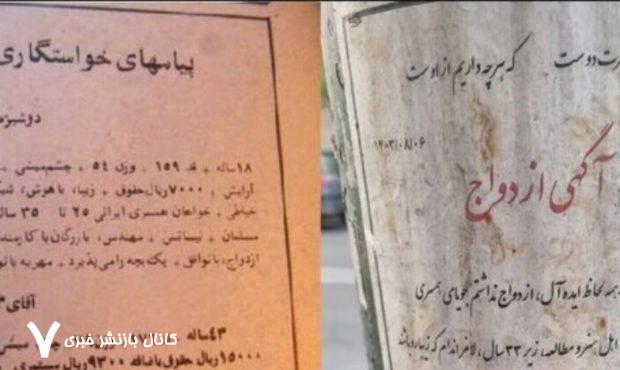 پیامهای خواستگاری
دوشیزه
۱۸ساله + قد ۱۵۹ + وزن ۵٤ + چشم‌میشی
آرایش + ۷۰۰۰ریال‌حقوق + زیبا، باهوش،
خیاطی + خواهان همسری ایرانی ۲۵ تا ۳۵
مسلمان + لیسانس + مهندس، بازرگان یا کارمند
ازدواج، باتوافق + یک‌بچه رامی‌پذیرد + مهریه باتو
آقای
٤۳ساله
۱۵۰۰۰ ریال حقوق باضافه ۹۳۰۰ ریال مستمری
رت دوست که هر چه داریم از اوست
۱۴۰۳/۰۸/۰۶
آگهی ازدواج
همه لحاظ ایده آل، ازدواج نداشتم جویای همسری
اهل هنر و مطالعه، زیر ۳۳ سال، لاغر اندام که زیبا رو باشد
کانال بازنشر خبری ۷